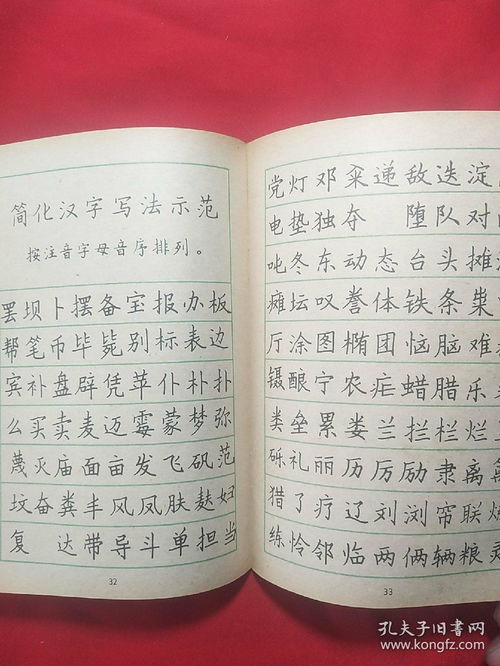 简化汉字写法示范
按注音字母音序排列。
罢坝卜摆备宝报办板
帮笔币毕毙别标表边
宾补盘辟凭苹仆朴扑
么买卖麦迈霉蒙梦弥
蔑灭庙面亩发飞矾范
坟奋粪丰风凤肤麸妇
复 达带导斗单担当
32
党灯邓籴递敌迭淀
电垫独夺 堕队对
吨冬东动态台头摊滩
瘫坛叹誊体铁条粜
厅涂图椭团恼脑难
镊酿宁农疟蜡腊乐
类垒累娄兰拦栏烂
砾礼丽历厉励隶离
猎了疗辽刘浏帘联
练怜邻临两俩辆粮灵
33
孔夫子旧书网
www.kongfz.com